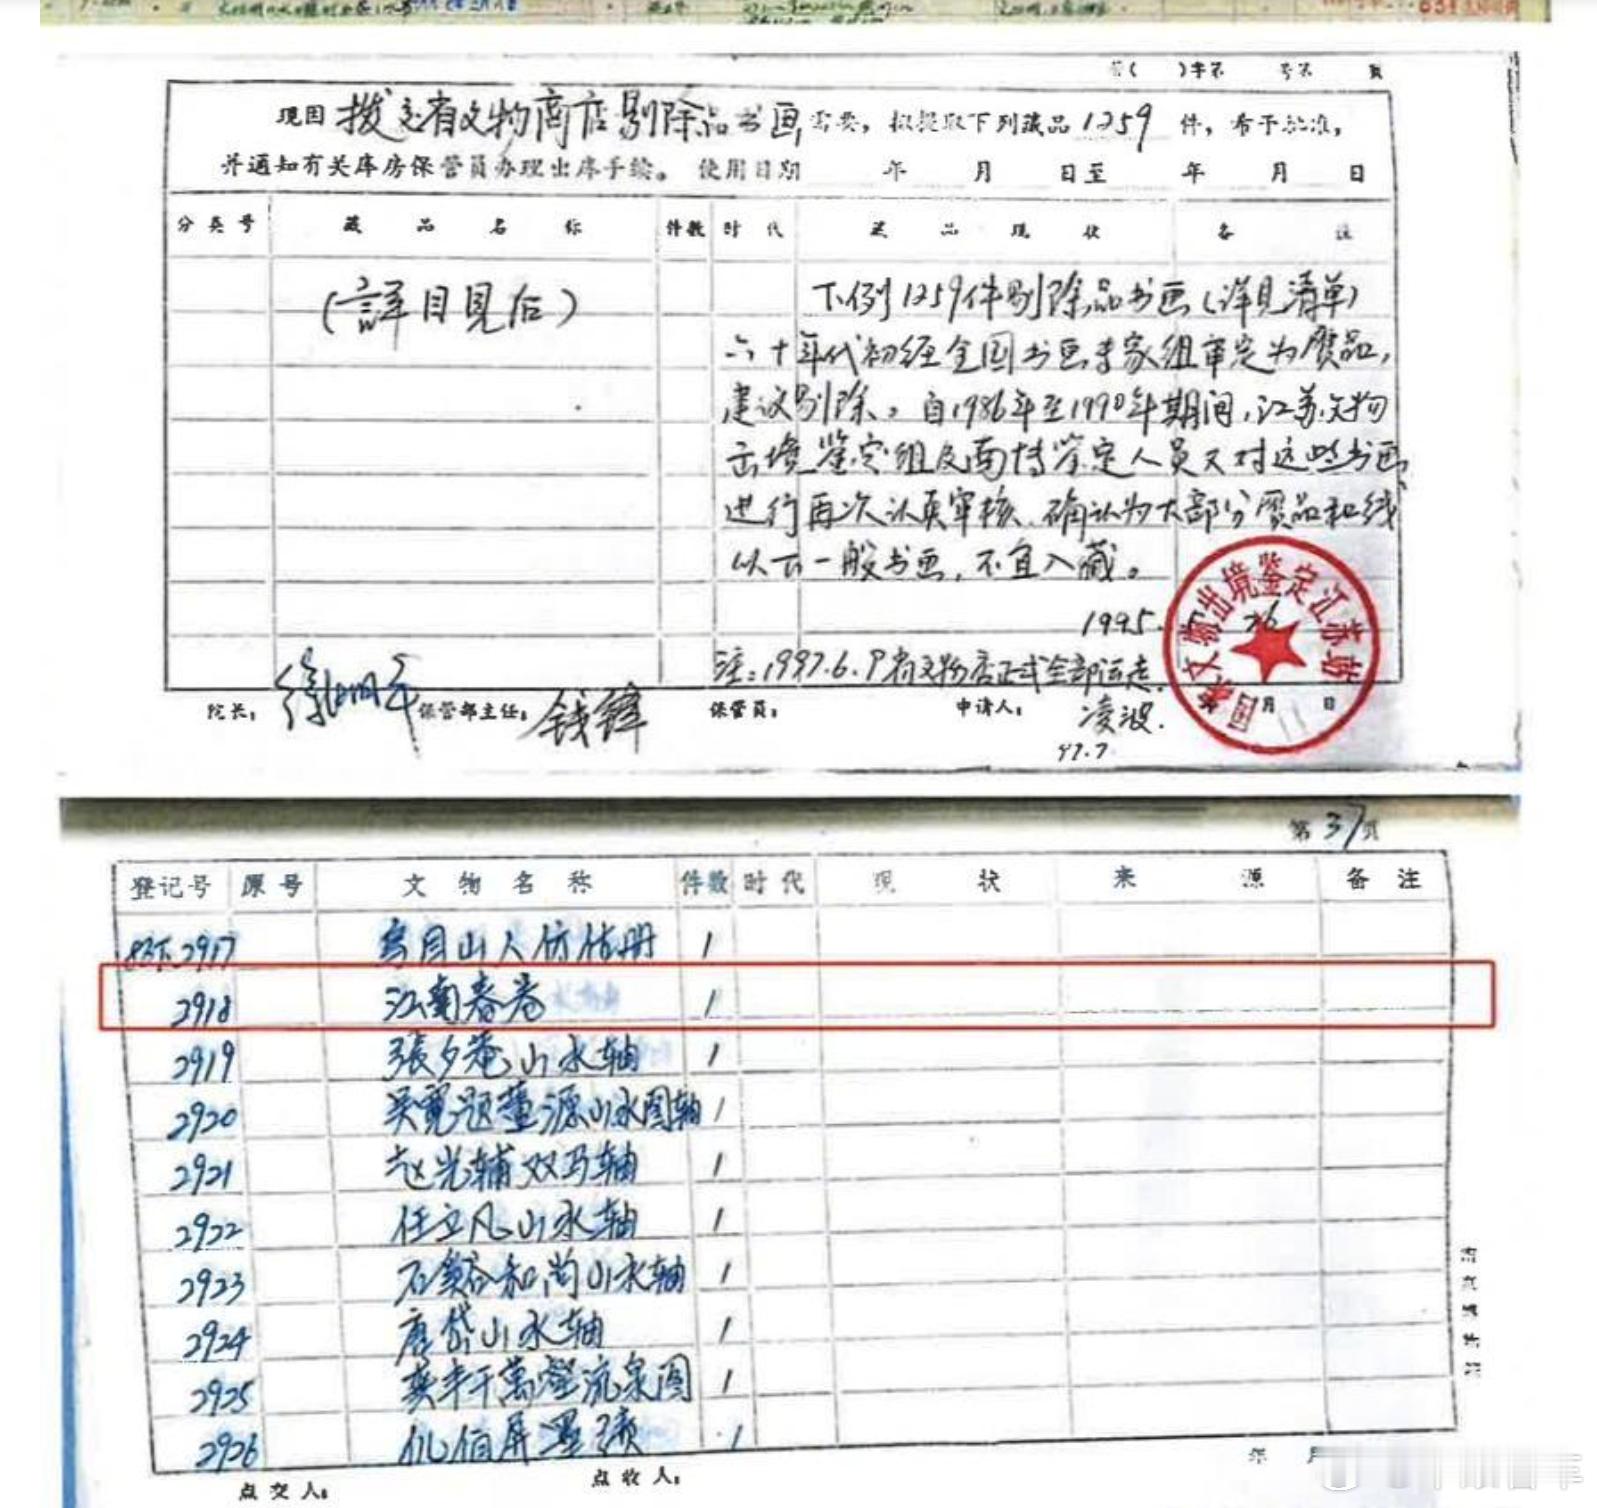 字第 号第 页
现因拨交省文物商店剔除品书画需要，拟提取下列藏品1259件，希予批准，
并通知有关库房保管员办理出库手续。使用日期 年 月 日至 年 月 日
分类号 藏品名称 件数 时代 藏品现状 备注
(詳目見后)
下例1259件剔除品书画(详见清单)
六十年代初经全国书画专家组审定为赝品，
建议剔除。自1986年至1990年期间，江苏文物
出境鉴定组及南博鉴定人员又对这些书画
进行再次认真审核，确认为大部分赝品和线
以下一般书画，不宜入藏。
1995.
注：1997.6.9省文物店正式全部运走.
院长： 徐湖平 保管部主任： 钱锋 保管员： 申请人： 凌波.
97.7
国家文物出境鉴定江苏站
月 日
第37页
登记号 原号 文物名称 件数 时代 现状 来源 备注
2917 乌目山人仿估册 1
2918 江南春卷 1
2919 張夕菴山水轴 1
2920 吴寛题董源山水图轴 1
2921 赵光辅双马轴 1
2922 任立凡山水轴 1
2923 石谿和尚山水轴 1
2924 唐岱山水轴 1
2925 千萬壑流泉图 1
2926 1
点交人： 点收人： 年 月